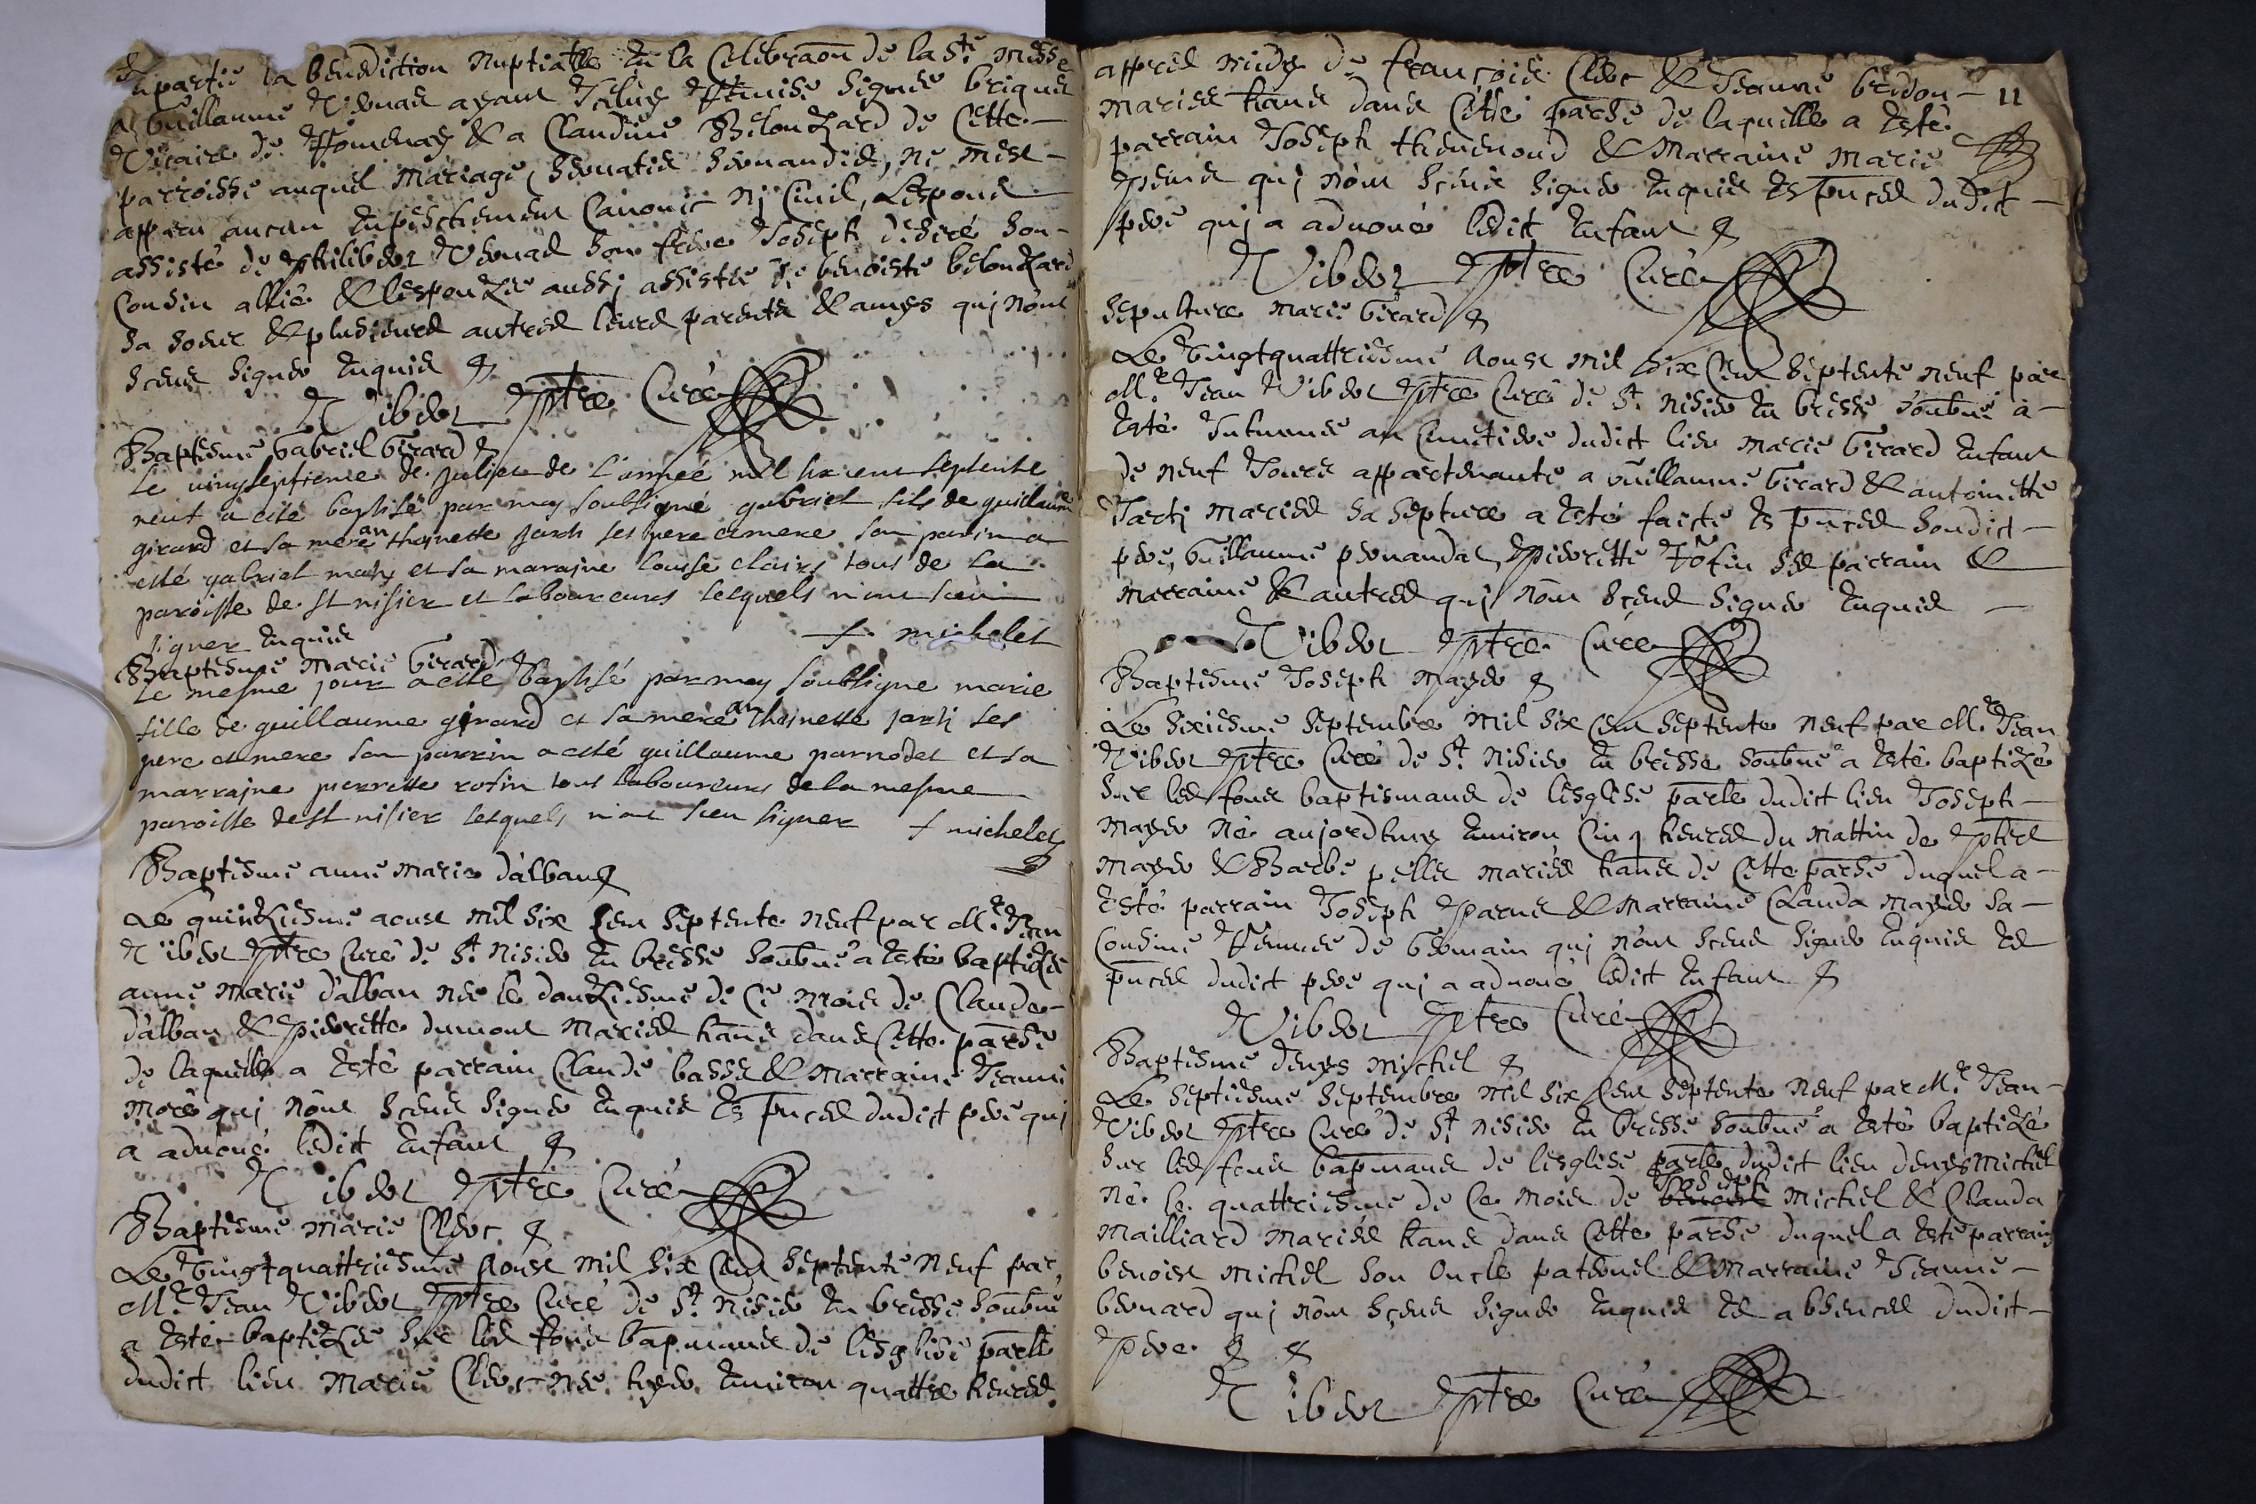 départie la benediction nuptialle en la celebraon de la Ste messe
a Guillaume Vernas ayant remise signée Briquet
Vicaire de & a Claudine Belouzard de Cette
parroisse auquel mariage, ne s'est
apparu aucun enpeschement canonic nj civil, Lespoux
assisté de philiber Vernad son frere Joseph desiré son
Cousin allié & lespouzée aussj assistée de benoiste belouzard
sa soeur & plusieurs autres leurs parents & amys quj n'ont
sceus signer enquis
Viber ptre Curé
Baptesme Gabriel Girard
Le vingseptieme de juliet de l'année mil six cent septente
neuf a esté baptisé par moy soubsigné gabriel fils de guillaume
girard et sa mere anthoinette jarti ses pere et mere son parin a
esté gabriel maty et sa maraine louise clairs tous de la
paroisse de st nisier et laboureurs lesquels n'ont sceu
signer Enquis
f michelet
Baptesme Marie Girard
Le mesme jour a esté baptisé par moy soubsigne marie
fille de guillaume girard et sa mere anthoinette jarti ses
pere et mere son parrin a esté guillaume parnodet et sa
marraine pierrette rosin tous laboureurs de la mesme
paroisse de st nisier lesquels n'ont sceu signer f michelet
Baptesme anne marie d'alban
Le quinziesme aoust mil six cent septente neuf par Mre Jean
Viber ptre Curé de St nisier en bresse soubné a esté baptizée
anne marie d'alban née le douziesme de ce mois de Claude
d'alban & pierrette dumont mariés hans dans Cette parsse
de laquelle a esté parrain Claude basset & marraine Jeanne
moré quj n'ont sceus signer enquis es pnces dudict pere quj
a advoué ledict enfant
Viber ptre Curé
Baptesme marie Clerc
Le vingtquattriesme Aoust mil six cent septente neuf par
Mre Jean Viber ptre Curé de St nisier en bresse soubné
a esté baptizée sur les fons bapmaus de lesglise parle
dudict lieu marie Clerc née hyer environ quattre heures
11
appres midy de françois Clerc & Jeanne bridon
mariés hans dans Cette parsse de laquelle a esté
parrain Joseph thevenoud & marraine marie
quj n'ont sceus signer enquis es pnces dudict
pere quj a advoué ledict enfant
Viber ptre Curé
Sepulture marie Girard
Le vingtquattriesme Aoust mil six cent septente neuf par
Mre Jean Viber ptre Curé de St nisier en bresse soubné a
esté inhumée au cimetiere dudict lieu marie Girard enfant
de neuf Jours appartenante a Guillaume Girard & antoinette
Jartj mariés sa septure a esté faicte es pnces soudict
pere, Guillaume pernandat, pierrette rosin ses parrain &
marraine & autres quj n'ont sceus signer enquis
Viber ptre Curé
Baptesme Joseph mayer
Le sixiesme septembre mil six cent septente neuf par Mre Jean
Viber ptre Curé de St nisier en bresse soubné a esté baptizé
sur les fons baptismaus de lesglise parle dudict lieu Joseph
mayer né aujordhuy environ cinq heures du mattin de
mayer & Barbe pelles mariés hans de Cette parsse duquel a
esté parrain Joseph & marraine Clauda mayer sa
Cousine femme de Germain quj n'ont sceus signer enquis es
pnces dudict pere quj a advoué ledict enfant
Viber ptre Curé
Baptesme denys michel
Le septiesme septembre mil six cent septente neuf par Mre Jean
Viber ptre Curé de St nisier en bresse soubné a esté baptizé
sur les fons bapmaus de lesglise parle dudict lieu denys michel
né le quattriesme de ce mois de Joseph michel & Clauda
mailliard mariés hans dans Cette parsse duquel a esté parrain
benoist michel son oncle paternel & marraine Jeanne
bernard quj n'ont sceus signer enquis es absences dudict
pere.
Viber ptre Curé